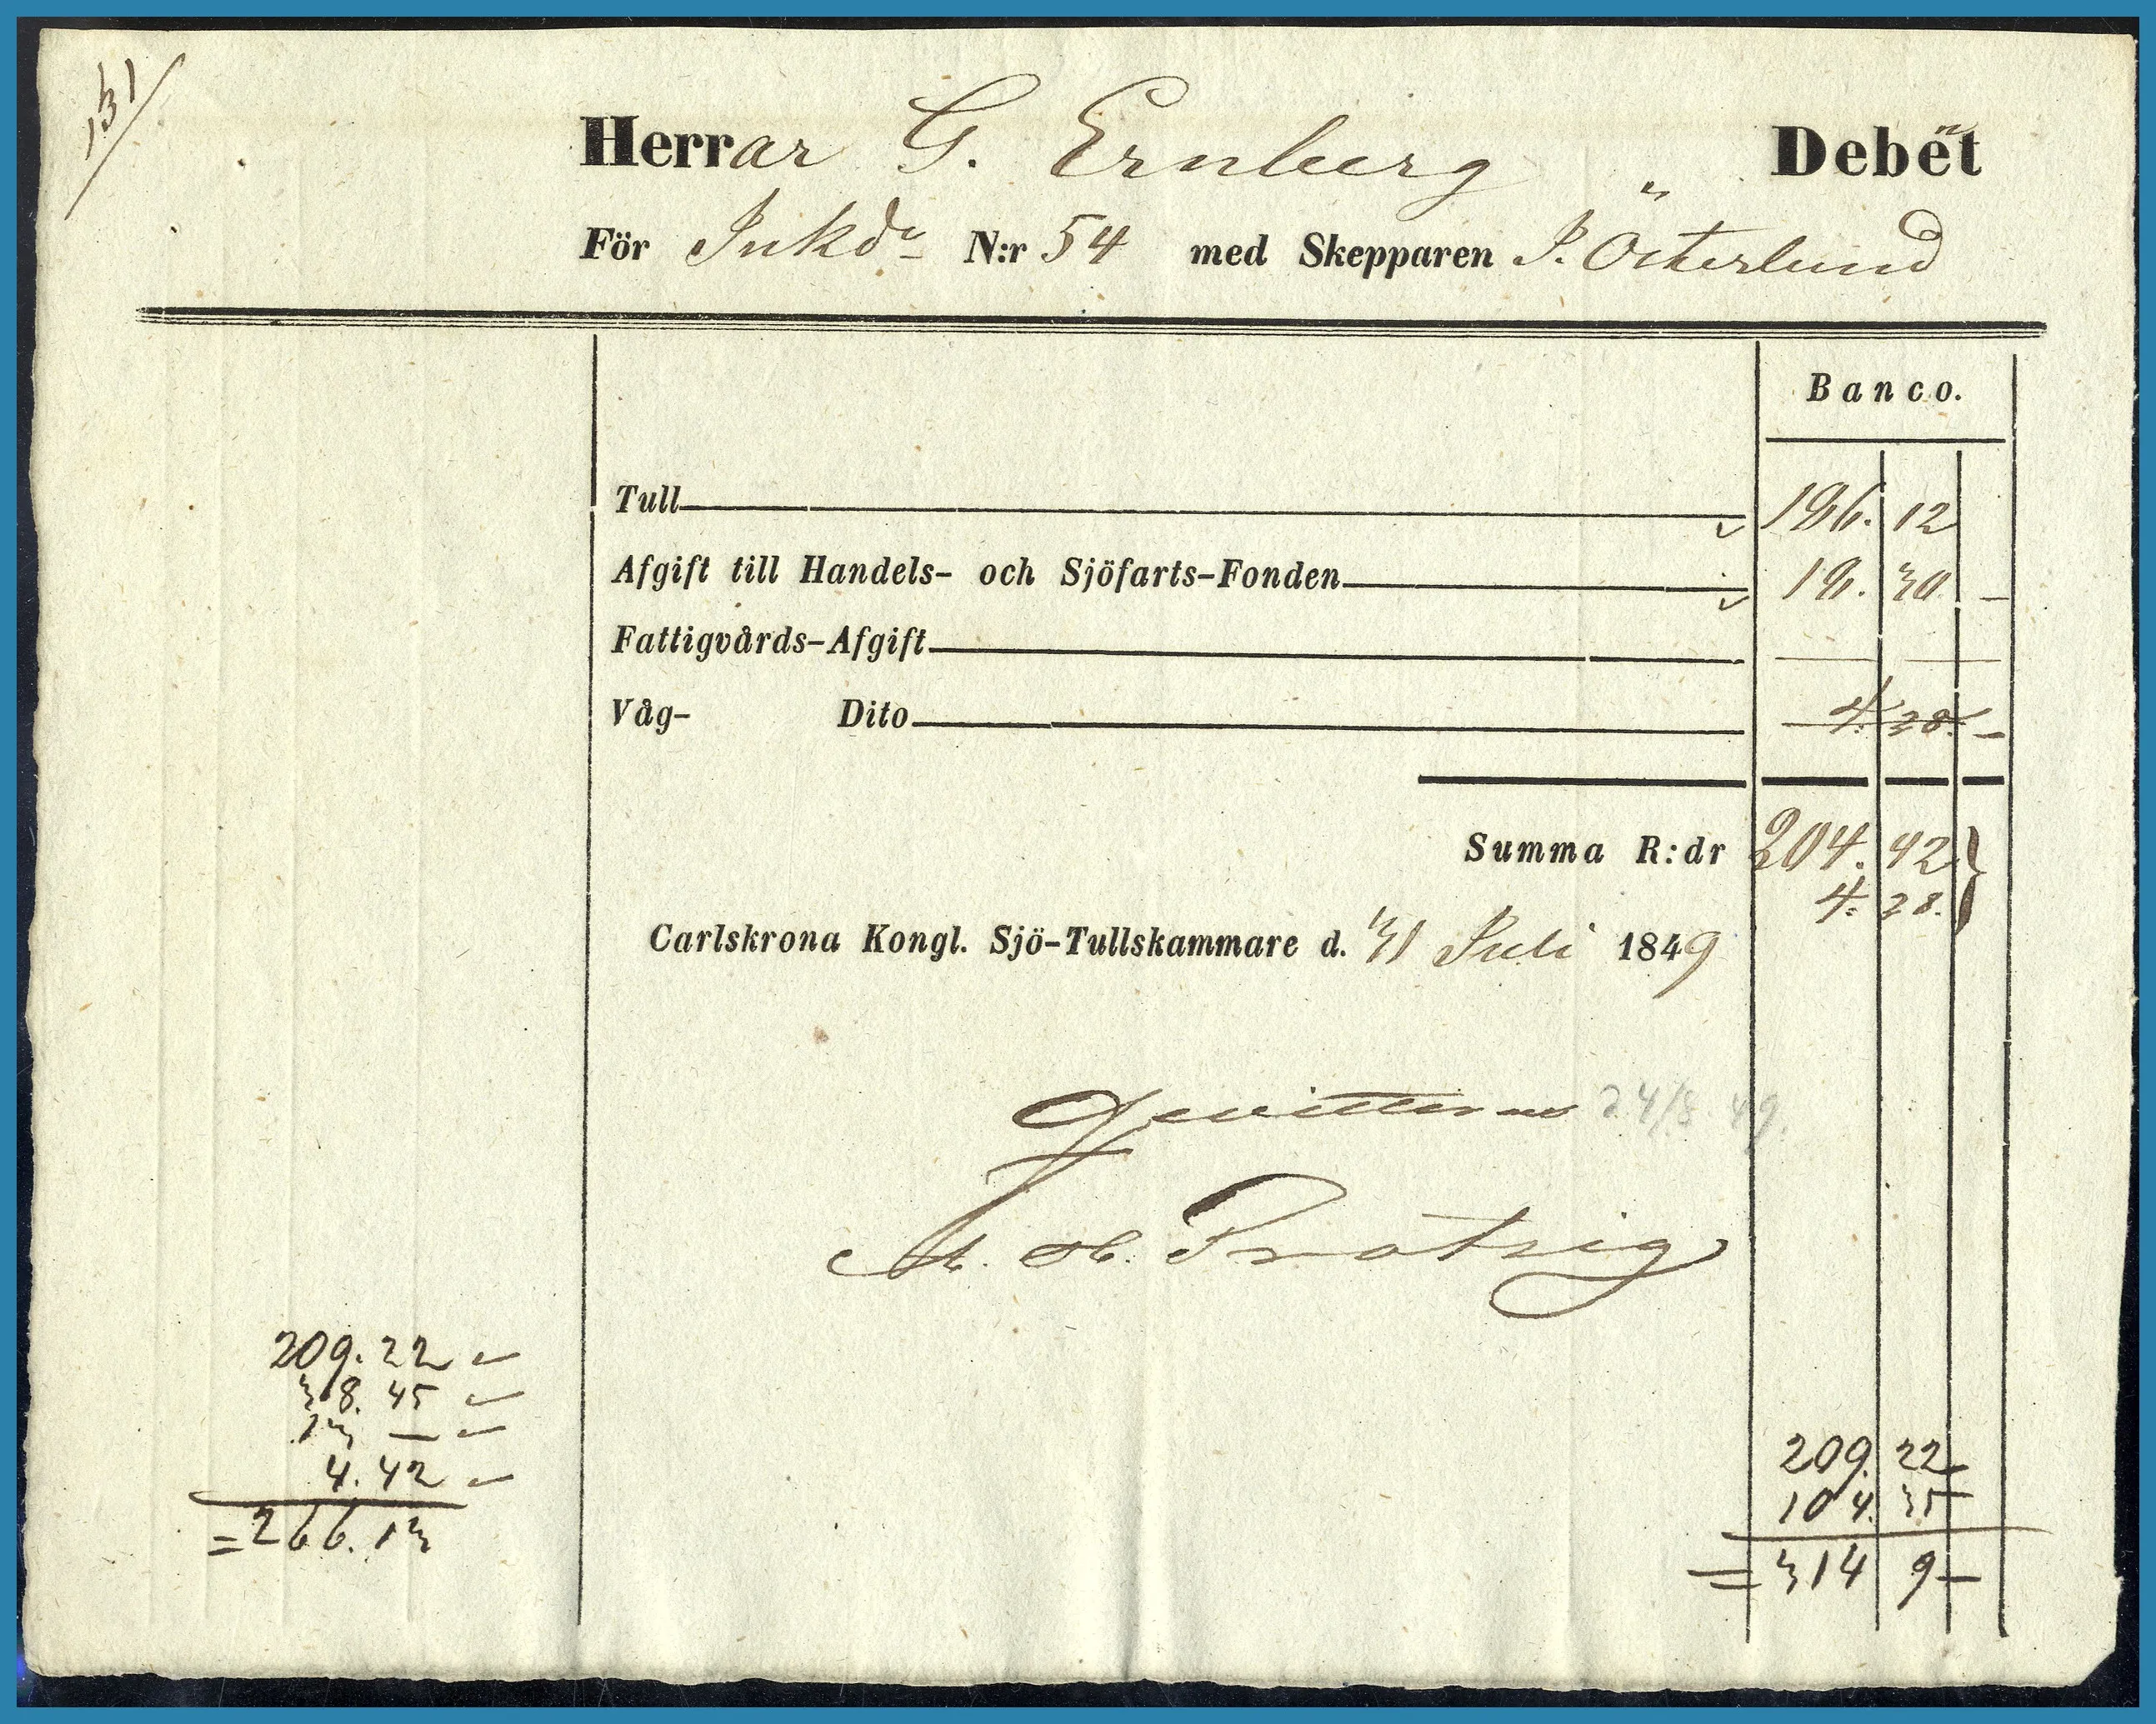 131/
Herrar G. Ernberg " Debet
För Inkde N:r 54 med Skepparen P. Österlund
Banco.
Tull 186. 12
Afgift till Handels- och Sjöfarts-Fonden 18. 30 –
Fattigvårds-Afgift — —
Våg- Dito 4. 28. –
Summa R:dr 204. 42
4. 28.
Carlskrona Kongl. Sjö-Tullskammare d. 31 Juli 1849
Qvitteras 24/8 49.
209. 22 –
38. 45 –
13 — –
4. 42 –
= 266. 13
209. 22 –
104. 35 –
= 314 9 –